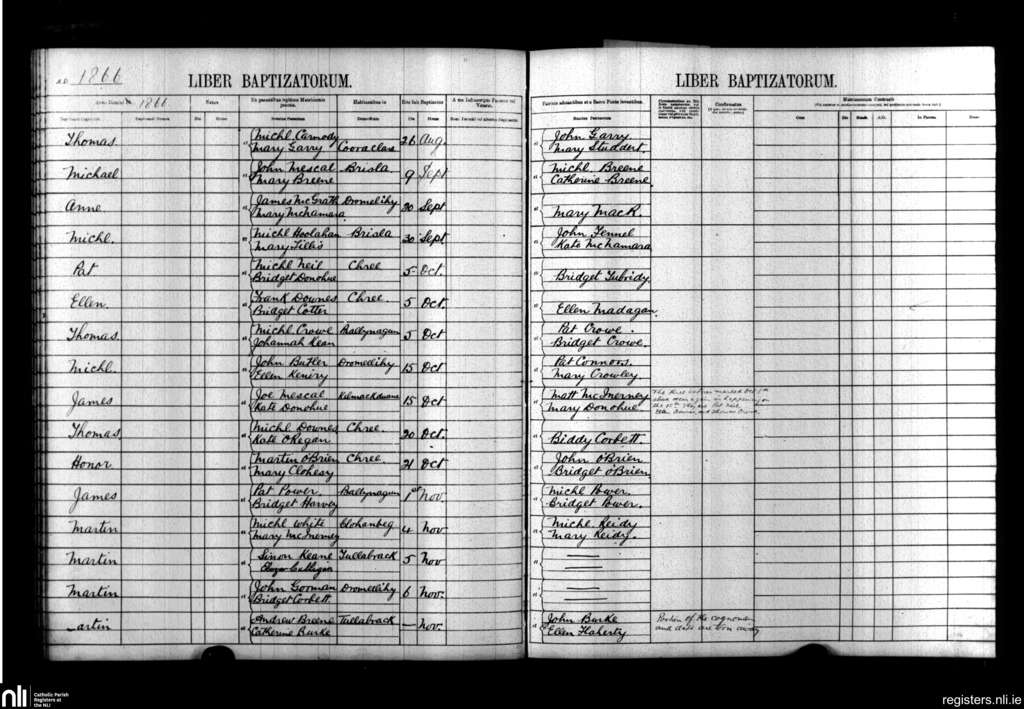 A.D. 1866
LIBER BAPTIZATORUM.
Anno Domini 1866.
Thomas
Michl Carmody
Mary Garry Cooraclas
26 Aug.
Michael
John Mescal Brisla
Mary Breene
9 Sept
Anne
James McGrath Dromelihy
Mary McNamara
30 Sept
Michl.
Michl Hoolahan Brisla
Mary
30 Sept.
Pat
Michl Neil Chree
Bridget Donohue
5 Oct.
Ellen.
Frank Downes Chree.
Bridget Cotter
5 Oct.
Thomas.
Michl Crowe Ballynagun
Johannah Kean
5 Oct
Michl.
John Butler Dromellihy
Ellen Keniry
15 Oct
James
Joe Mescal Kilmackduane
Kate Donohue
15 Oct
Thomas.
Michl Downes Chree.
Kate O'Regan
20 Oct.
Honor
Martin O'Brien Chree.
Mary Clohesy
21 Oct
James
Pat Power. Ballynagun
Bridget Harvey
1st Nov.
Martin
Michl White Clohanbeg
Mary McInerney
4 Nov
Martin
Simon Keane Tullabrack
Culligan
5 Nov
Martin
John Gorman Dromellihy
Bridget Corbett.
6 Nov.
artin
Andrew Breene Tullabrack
Catherine Burke
— Nov.
LIBER BAPTIZATORUM.
John Garry
Mary Studdert.
Michl. Breene
Catherine Breene.
Mary Mack.
John Fennel
Kate McNamara
Bridget Tubridy.
Ellen Madagan.
Pat Crowe.
Bridget Crowe.
Pat Connors.
Mary Crowley.
Matt McInerney
Mary Donohue
Biddy Corbett.
John O'Brien
Bridget O'Brien
Michl Power.
Bridget Power.
Michl Reidy
Mary Reidy.
John Burke
Ellen Flaherty
Portion of the cognomen
and date are torn away
nli
Catholic Parish
Registers at
the NLI
registers.nli.ie